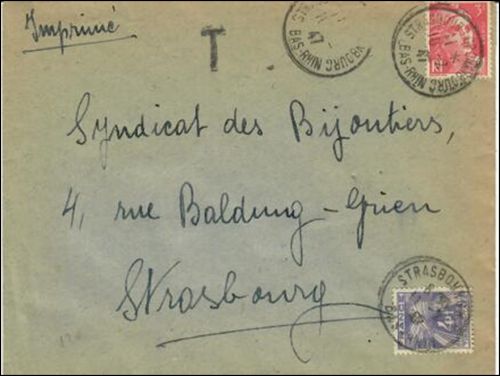 Imprimé
T
STRASBOURG
47
BAS-RHIN
STRASBOURG
47
BAS-RHIN
Syndicat des Bijoutiers,
4, rue Baldung-Grien
Strasbourg
STRASBOURG
FRANCE